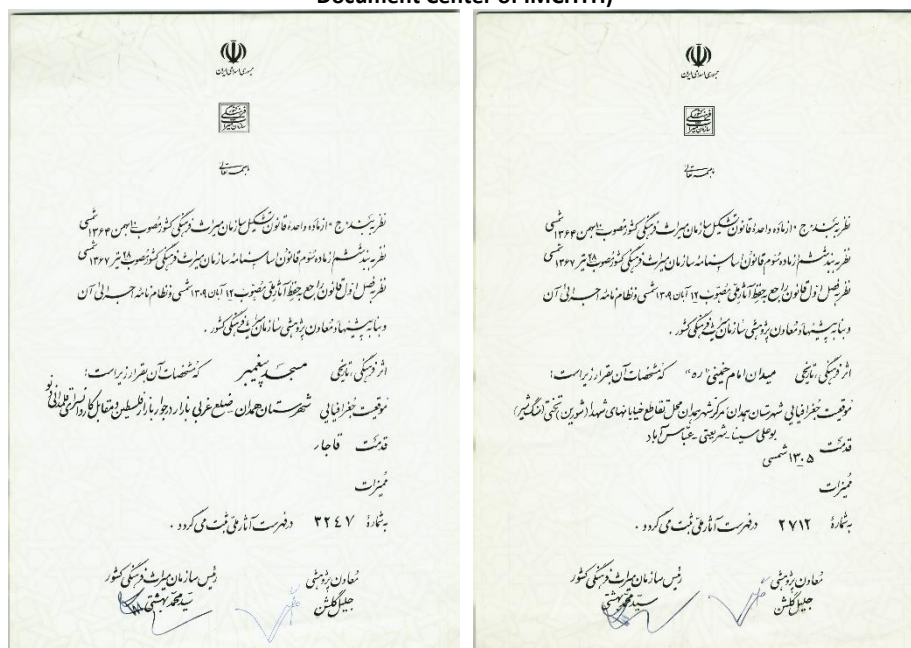 Document Center of IMCHTH)
جمهوری اسلامی ایران
سازمان میراث فرهنگی کشور
باسمه تعالی
نظر به بند «ج» از ماده واحدهٔ قانون تشکیل سازمان میراث فرهنگی کشور مصوب ۱۰ بهمن ۱۳۶۴ شمسی
نظر به بند ششم از ماده سوم قانون اساسنامه سازمان میراث فرهنگی کشور مصوب ۲۸ تیر ۱۳۶۷ شمسی
نظر به فصل اول قانون راجع به حفظ آثار ملی مصوب ۱۲ آبان ۱۳۰۹ شمسی و نظام نامه اجرائی آن
و بنا به پیشنهاد معاون پژوهشی سازمان میراث فرهنگی کشور .
اثر فرهنگی ، تاریخی مسجد پیغمبر که مشخصات آن بقرار زیر است :
موقعیت جغرافیایی شهرستان همدان ضلع غربی بازار در جوار بازار فلسطین و مقابل کاروانسرای قلمدانی نو
قدمت قاجار
ممیزات
به شمارهٔ ۳۲۴۷ در فهرست آثار ملی ثبت می گردد .
معاون پژوهشی
جلیل گلشن
رئیس سازمان میراث فرهنگی کشور
سید محمد بهشتی
جمهوری اسلامی ایران
سازمان میراث فرهنگی کشور
باسمه تعالی
نظر به بند «ج» از ماده واحدهٔ قانون تشکیل سازمان میراث فرهنگی کشور مصوب ۱۰ بهمن ۱۳۶۴ شمسی
نظر به بند ششم از ماده سوم قانون اساسنامه سازمان میراث فرهنگی کشور مصوب ۲۸ تیر ۱۳۶۷ شمسی
نظر به فصل اول قانون راجع به حفظ آثار ملی مصوب ۱۲ آبان ۱۳۰۹ شمسی و نظام نامه اجرائی آن
و بنا به پیشنهاد معاون پژوهشی سازمان میراث فرهنگی کشور .
اثر فرهنگی ، تاریخی میدان امام خمینی "ره" که مشخصات آن بقرار زیر است :
موقعیت جغرافیایی شهرستان همدان مرکز شهر همدان محل تقاطع خیابانهای شهدا (شورین) تختی (اکباتان)
بوعلی سینا - شریعتی - عباس آباد
قدمت ۱۳۰۵ شمسی
ممیزات
به شمارهٔ ۲۷۱۲ در فهرست آثار ملی ثبت می گردد .
معاون پژوهشی
جلیل گلشن
رئیس سازمان میراث فرهنگی کشور
سید محمد بهشتی